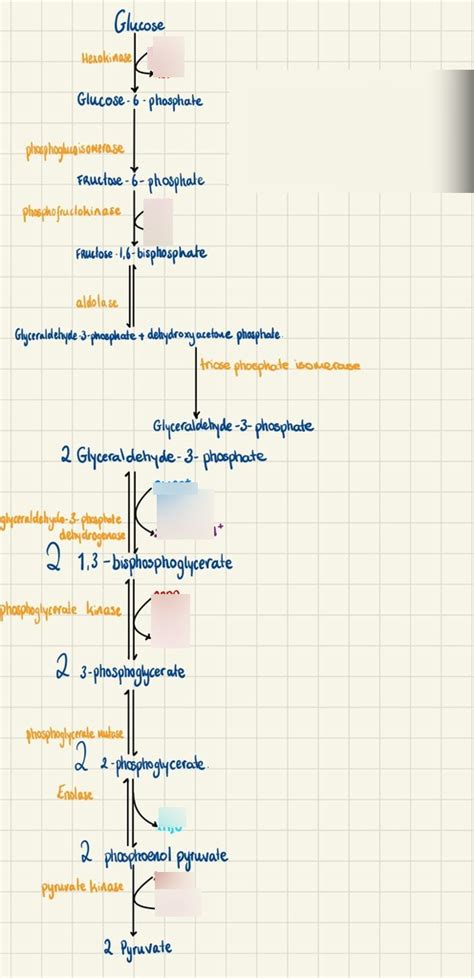 Glucose
Hexokinase
Glucose-6-phosphate
phosphoglucoisomerase
Fructose-6-phosphate
phosphofructokinase
Fructose-1,6-bisphosphate
aldolase
Glyceraldehyde-3-phosphate + dehydroxyacetone phosphate
triose phosphate isomerase
Glyceraldehyde-3-phosphate
2 Glyceraldehyde-3-phosphate
glyceraldehyde-3-phosphate
dehydrogenase
2 1,3-bisphosphoglycerate
phosphoglycerate kinase
2 3-phosphoglycerate
phosphoglycerate mutase
2 2-phosphoglycerate
Enolase
2 phosphoenol pyruvate
pyruvate kinase
2 Pyruvate